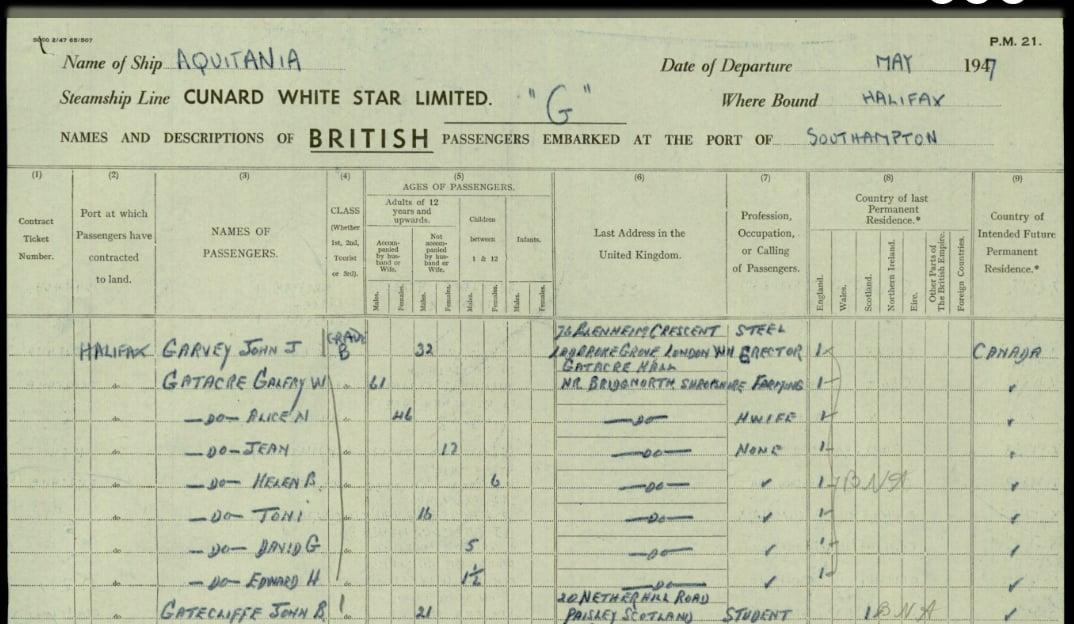 5000 2/47 65/507
P.M. 21.
Name of Ship AQUITANIA
Date of Departure MAY 1947
Steamship Line CUNARD WHITE STAR LIMITED. "G"
Where Bound HALIFAX
NAMES AND DESCRIPTIONS OF BRITISH PASSENGERS EMBARKED AT THE PORT OF SOUTHAMPTON
(1) (2) (3) (4) (5) (6) (7) (8) (9)
Contract Ticket Number.
Port at which Passengers have contracted to land.
NAMES OF PASSENGERS.
CLASS (Whether 1st, 2nd, Tourist or 3rd).
AGES OF PASSENGERS.
Adults of 12 years and upwards.
Accompanied by husband or Wife.
Not accompanied by husband or Wife.
Children between 1 & 12
Infants.
Males. Females. Males. Females. Males. Females. Males. Females.
Last Address in the United Kingdom.
Profession, Occupation, or Calling of Passengers.
Country of last Permanent Residence.*
England. Wales. Scotland. Northern Ireland. Eire. Other Parts of The British Empire. Foreign Countries.
Country of Intended Future Permanent Residence.*
76 BLENHEIM CRESCENT STEEL
HALIFAX GARVEY JOHN J GRADE B 32 LADBROKE GROVE LONDON W11 ERECTOR 1 CANADA
GATACRE HALL
do GATACRE GALFRY W do 61 NR. BRIDGNORTH SHROPSHIRE FARMING 1 ✓
do —DO— ALICE N do 46 —DO— HWIFE 1 ✓
do —DO— JEAN do 17 —DO— NONE 1 ✓
do —DO— HELEN B. do 6 —DO— ✓ 1 BNA ✓
do —DO— TONI do 16 —DO— ✓ 1 ✓
do —DO— DAVID G do 5 —DO— ✓ 1 ✓
do —DO— EDWARD H do 1½ —DO— ✓ 1 ✓
20 NETHERHILL ROAD
do GATECLIFFE JOHN B do 21 PAISLEY SCOTLAND STUDENT 1 BNA ✓